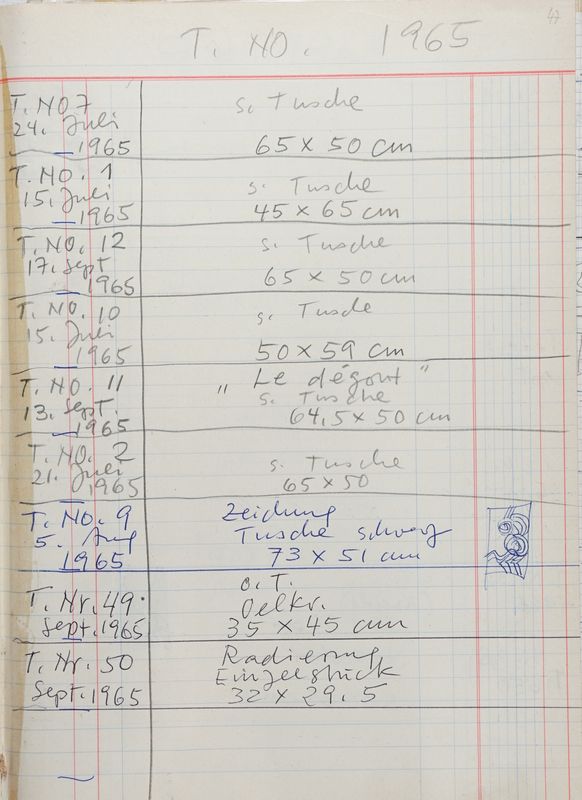 47
T. NO. 1965
T. NO 7 s. Tusche
24. Juli
1965 65 x 50 cm
T. NO. 1 s. Tusche
15. Juli
1965 45 x 65 cm
T. NO. 12 s. Tusche
17. Sept
1965 65 x 50 cm
T. NO. 10 s. Tusche
15. Juli
1965 50 x 59 cm
T. NO. 11 „ Le dégout "
13. Sept. s. Tusche
1965 64,5 x 50 cm
T. NO. 2 s. Tusche
21. Juli
1965 65 x 50
T. No. 9 Zeichung
5. Aug Tusche schwarz
1965 73 x 51 cm
o. T.
T. Nr. 49. Oelkr.
Sept. 1965 35 x 45 cm
T. Nr. 50 Radierung
Einzelstück
Sept. 1965 32 x 29.5